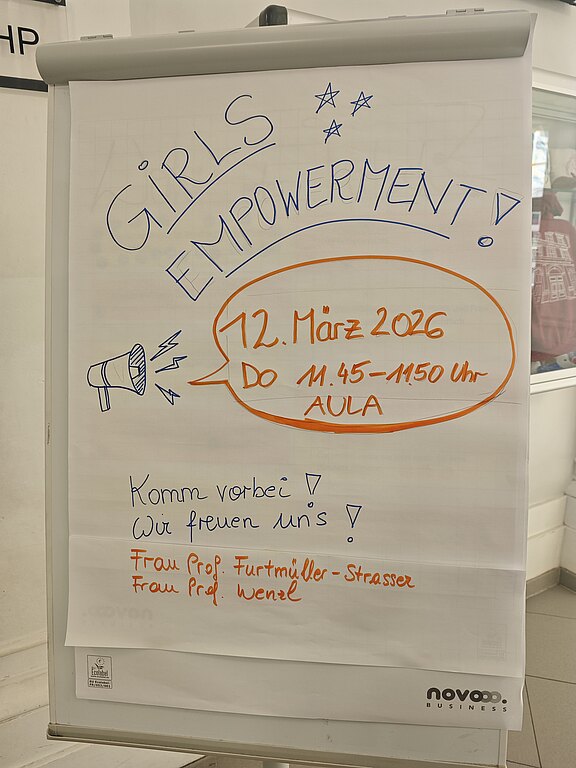 HP
GIRLS
EMPOWERMENT!
12. März 2026
Do 11.45-11.50 Uhr
AULA
Komm vorbei!
Wir freuen uns!
Frau Prof. Furtmüller-Strasser
Frau Prof. Wenzl
Ecolabel
novooo.
BUSINESS